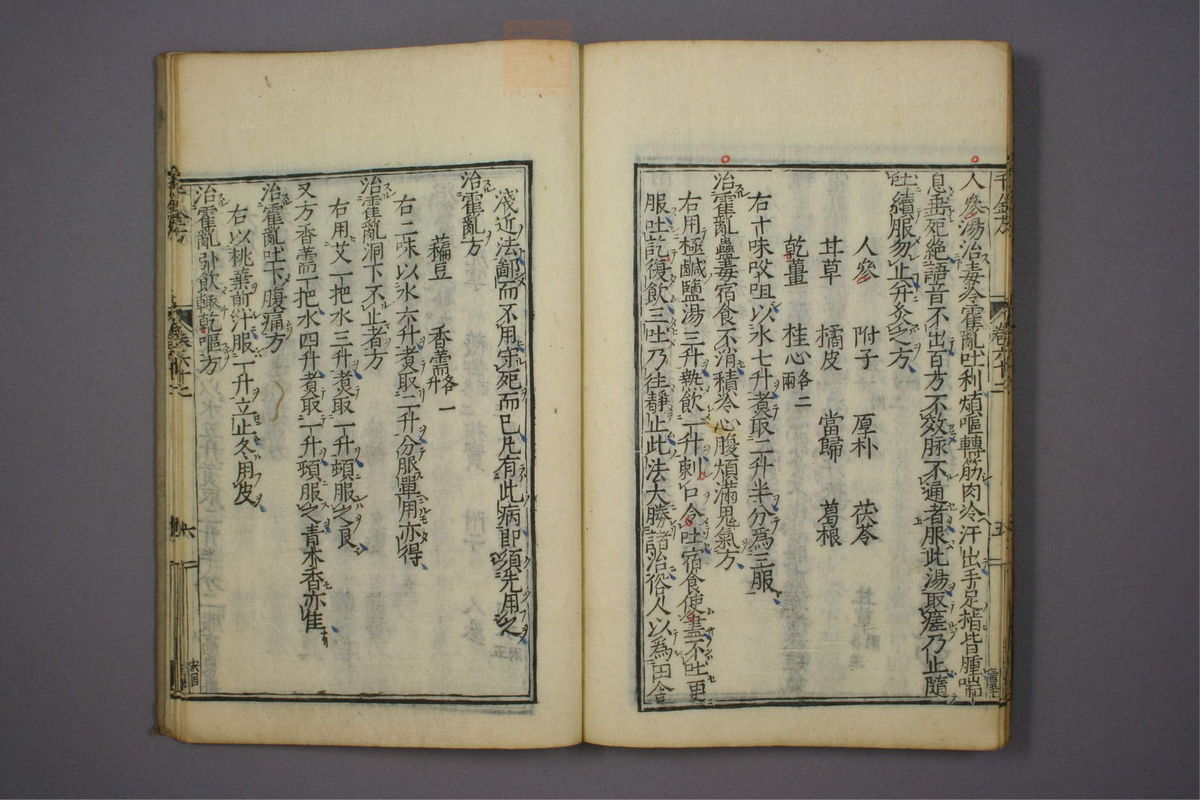 人參湯治毒冷霍亂吐利煩嘔轉筋肉冷汗出手足指皆腫喘
息垂死絶語音不出百方不效脉不通者服此湯取瘥乃止隨
吐續服勿止并灸之方
人參 附子 厚朴 茯苓
甘草 橘皮 當歸 葛根
乾薑 桂心各二兩
右十味㕮咀以水七升煮取二升半分爲三服
治霍亂蠱毒宿食不消積冷心腹煩滿鬼氣方
右用極鹹鹽湯三升熱飲一升刺口令吐宿食使盡不吐更
服吐訖復飲三吐乃住靜止此法大勝諸治俗人以爲田舍
淺近法鄙而不用守死而已凡有此病即須先用之
治霍亂方
藊豆 香薷各一升
右二味以水六升煮取二升分服單用亦得
治霍亂洞下不止者方
右用艾一把水三升煮取一升頓服之良
又方香薷一把水四升煮取一升頓服之青木香亦佳
治霍亂吐下腹痛方
右以桃葉煎汁服一升立止冬用皮
治霍亂引飲輒乾嘔方